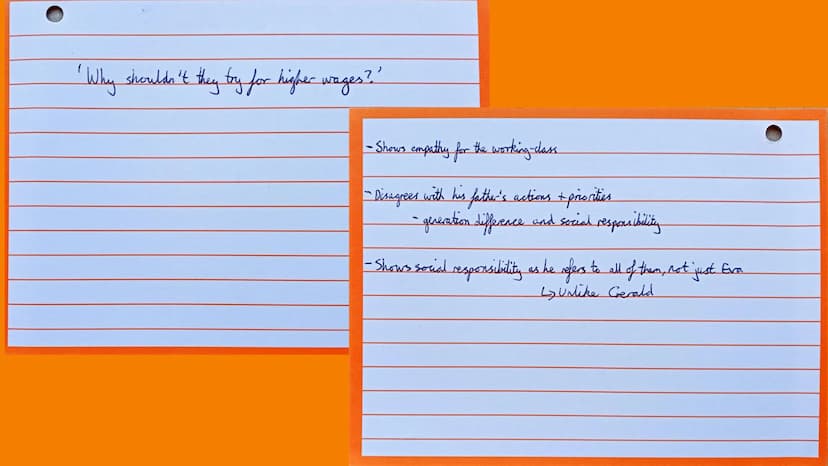 'Why shouldn't they try for higher wages?'
- Shows empathy for the working-class
- Disagrees with his father's actions + priorities
- generation difference and social responsibility
- Shows social responsibility as he refers to all of them, not just Eva
↳ Unlike Gerald